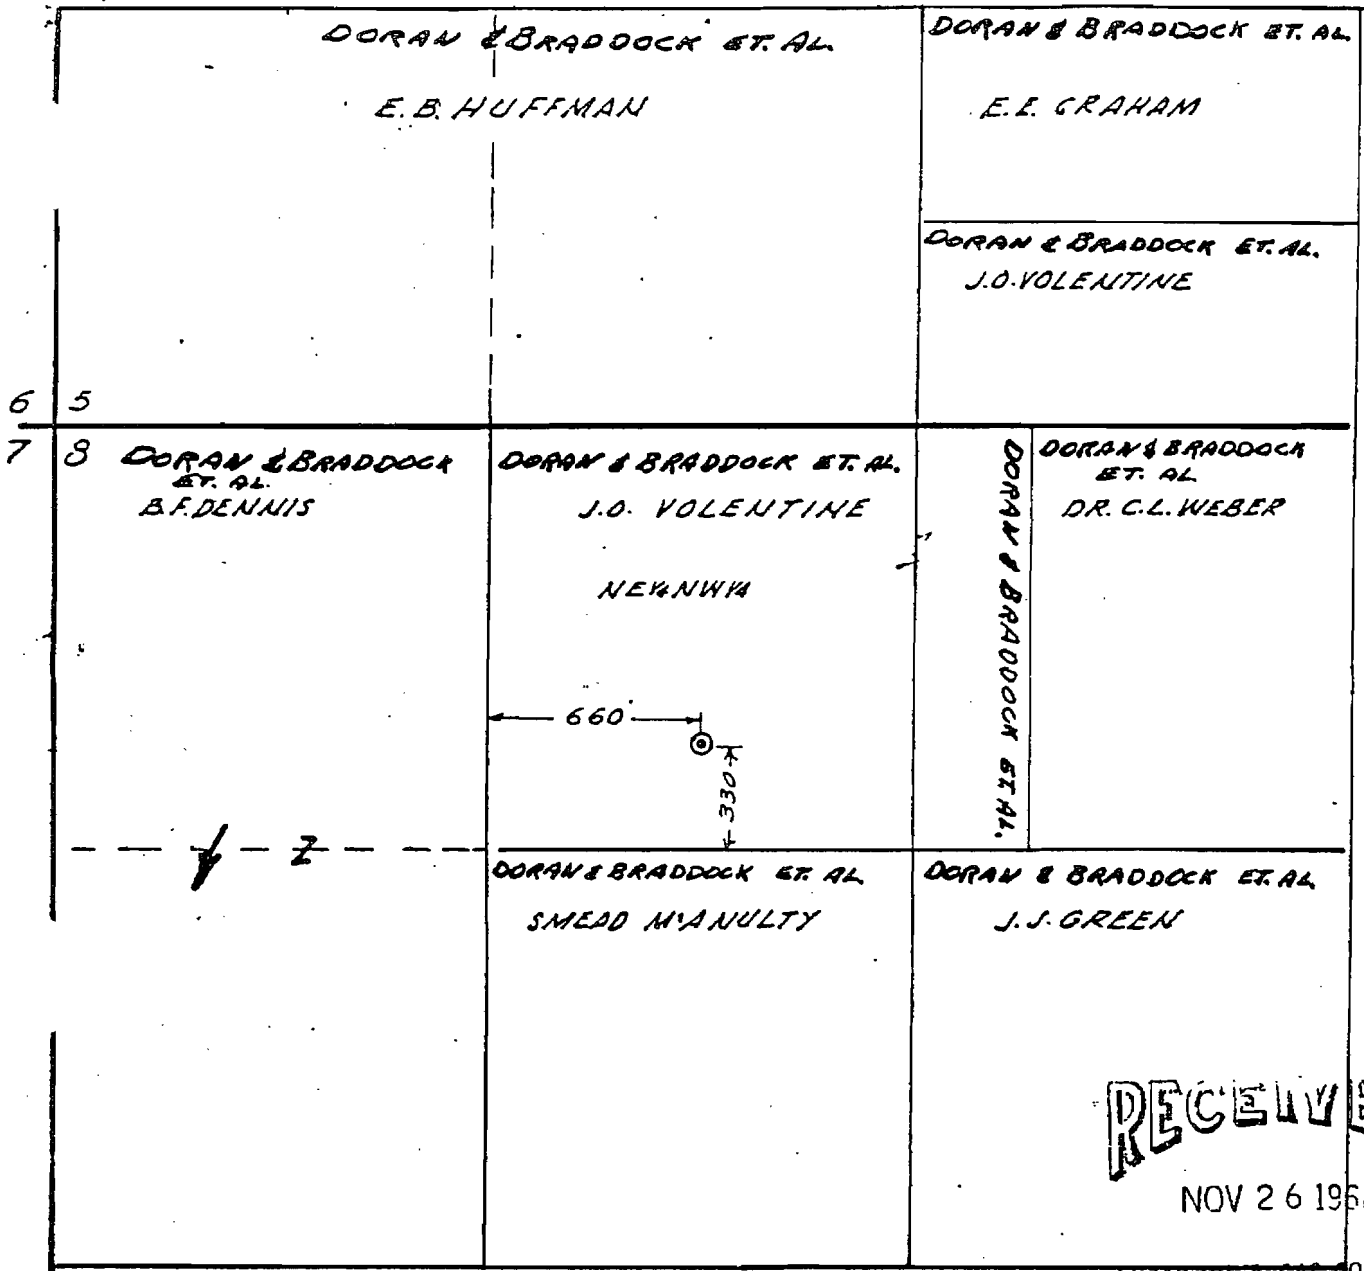 DORAN & BRADDOCK ET. AL.
E.B. HUFFMAN
DORAN & BRADDOCK ET. AL.
E.E. GRAHAM
DORAN & BRADDOCK ET. AL.
J.O. VOLENTINE
6 5
7 8
DORAN & BRADDOCK
ET. AL.
B.F. DENNIS
DORAN & BRADDOCK ET. AL.
J.O. VOLENTINE
NE¼NW¼
660'
330
DORAN & BRADDOCK ET AL.
DORAN & BRADDOCK
ET. AL
DR. C.L. WEBER
DORAN & BRADDOCK ET. AL
SMEAD McANULTY
DORAN & BRADDOCK ET. AL
J.J. GREEN
RECEIVE
NOV 26 196